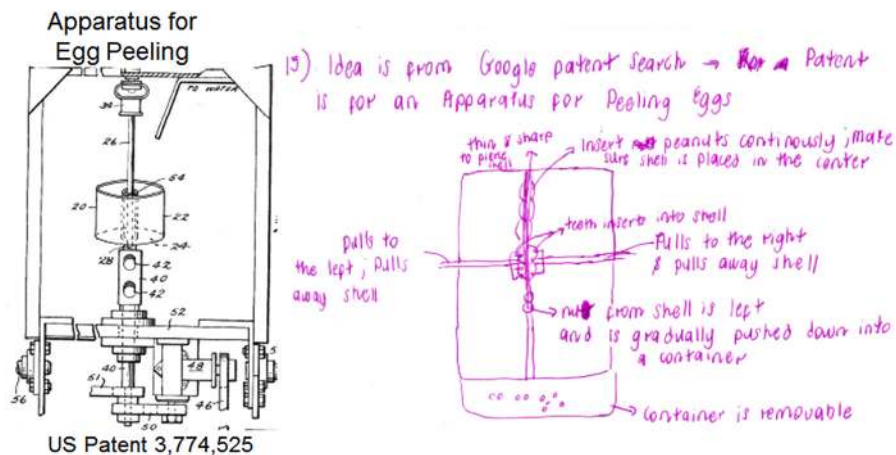 Apparatus for
Egg Peeling
TO WATER
34
26
64
20
22
24
28
42
40
42
52
40
48
51
46
50
56
US Patent 3,774,525
15) Idea is from Google patent search → Patent
is for an Apparatus for Peeling Eggs
thin & sharp
to pierce
shell
Insert peanuts continously; make
sure shell is placed in the center
teeth inserts into shell
pulls to
the left; pulls
away shell
Pulls to the right
& pulls away shell
nut from shell is left
and is gradually pushed down into
a container
container is removable